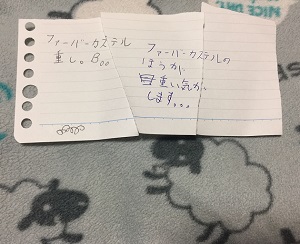 ファーバーカステル
重し。B。。
ファーバーカステルの
ほうが
重い気が
します。。。
NICE